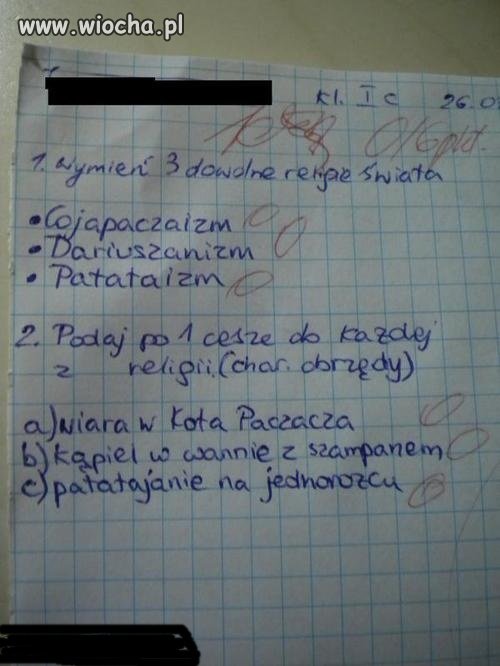 www.wiocha.pl
kl. I c 26.0
0/6 pkt.
1. Wymień 3 dowolne religie świata
• Cojapaczaizm 0
• Dariuszanizm 0
• Patataizm 0
2. Podaj po 1 cesze do każdej
z religii. (char. obrzędy)
a) wiara w Kota Paczacza 0
b) kąpiel w wannie z szampanem 0
c) patatajanie na jednorożcu 0